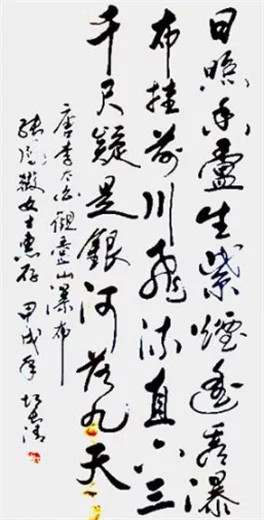 日照香盧生紫煙遙看瀑
布挂前川飛流直下三
千尺疑是銀河落九天
唐李太白觀廬山瀑布
張女士惠存 甲戌年